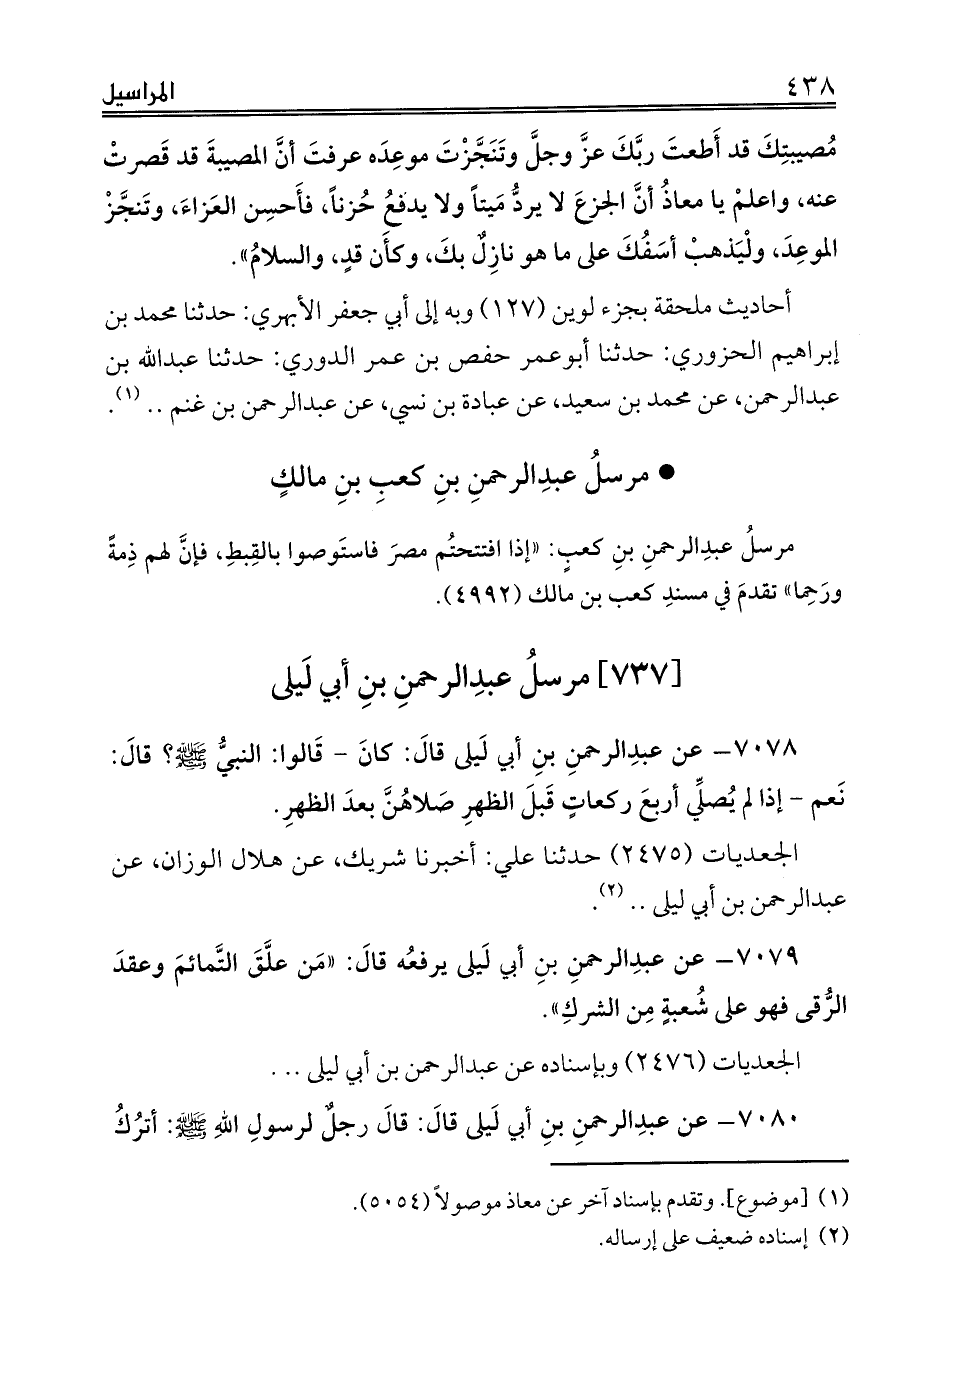 ٤٣٨
المراسيل
مُصيبتِكَ قد أَطعتَ ربَّكَ عزَّ وجلَّ وتَنَجَّزْتَ موعِدَه عرفتَ أنَّ المصيبةَ قد قَصرتْ
عنه، واعلمْ يا معاذُ أنَّ الجزعَ لا يردُّ مَيتاً ولا يدفعُ حُزناً، فأَحسِن العَزاءَ، وتَنجَّزْ
الموعِدَ، ولْيَذهبْ أسَفُكَ على ما هو نازِلٌ بكَ، وكأَن قدٍ، والسلامُ».
أحاديث ملحقة بجزء لوين (١٢٧) وبه إلى أبي جعفر الأبهري: حدثنا محمد بن
إبراهيم الحزوري: حدثنا أبوعمر حفص بن عمر الدوري: حدثنا عبدالله بن
عبدالرحمن، عن محمد بن سعيد، عن عبادة بن نسي، عن عبدالرحمن بن غنم .. (١).
● مرسلُ عبدِالرحمنِ بنِ كعبِ بنِ مالكٍ
مرسلُ عبدِالرحمنِ بنِ كعبٍ: «إذا افتتحتُم مصرَ فاستَوصوا بالقِبطِ، فإنَّ لهم ذِمةً
ورَحِما» تقدمَ في مسندِ كعب بن مالك (٤٩٩٢).
[٧٣٧] مرسلُ عبدِالرحمنِ بنِ أبي لَيلى
٧٠٧٨– عن عبدِالرحمنِ بنِ أبي لَيلى قالَ: كانَ – قَالوا: النبيُّ ﷺ؟ قالَ:
نَعم – إذا لم يُصلِّي أربعَ ركعاتٍ قَبلَ الظهرِ صَلاهُنَّ بعدَ الظهرِ.
الجعديات (٢٤٧٥) حدثنا علي: أخبرنا شريك، عن هلال الوزان، عن
عبدالرحمن بن أبي ليلى .. (٢).
٧٠٧٩– عن عبدِالرحمنِ بنِ أبي لَيلى يرفعُه قالَ: «مَن علَّقَ التَّمائمَ وعقدَ
الرُّقى فهو على شُعبةٍ مِن الشركِ».
الجعديات (٢٤٧٦) وبإسناده عن عبدالرحمن بن أبي ليلى .. .
٧٠٨٠– عن عبدِالرحمنِ بنِ أبي لَيلى قالَ: قالَ رجلٌ لرسولِ اللهِ ﷺ: أترُكُ
(١) [موضوع]. وتقدم بإسناد آخر عن معاذ موصولاً (٥٠٥٤).
(٢) إسناده ضعيف على إرساله.